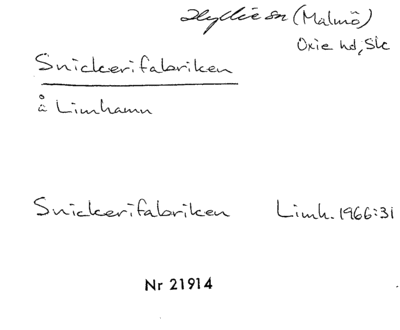 Hyllie sn (Malmö)
Oxie hd, Sk
Snickerifabriken
å Limhamn
Snickerifabriken Limh. 1966:31
Nr 21914